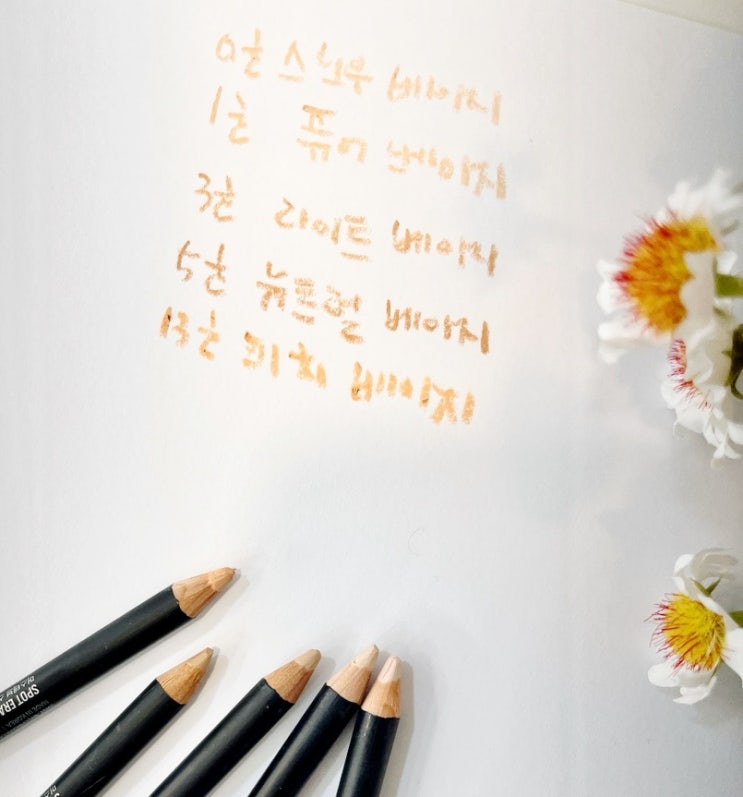 0호 스노우 베이지
1호 퓨어 베이지
3호 라이트 베이지
5호 뉴트럴 베이지
13호 피치 베이지
SPOT ERA
MADE IN KOREA